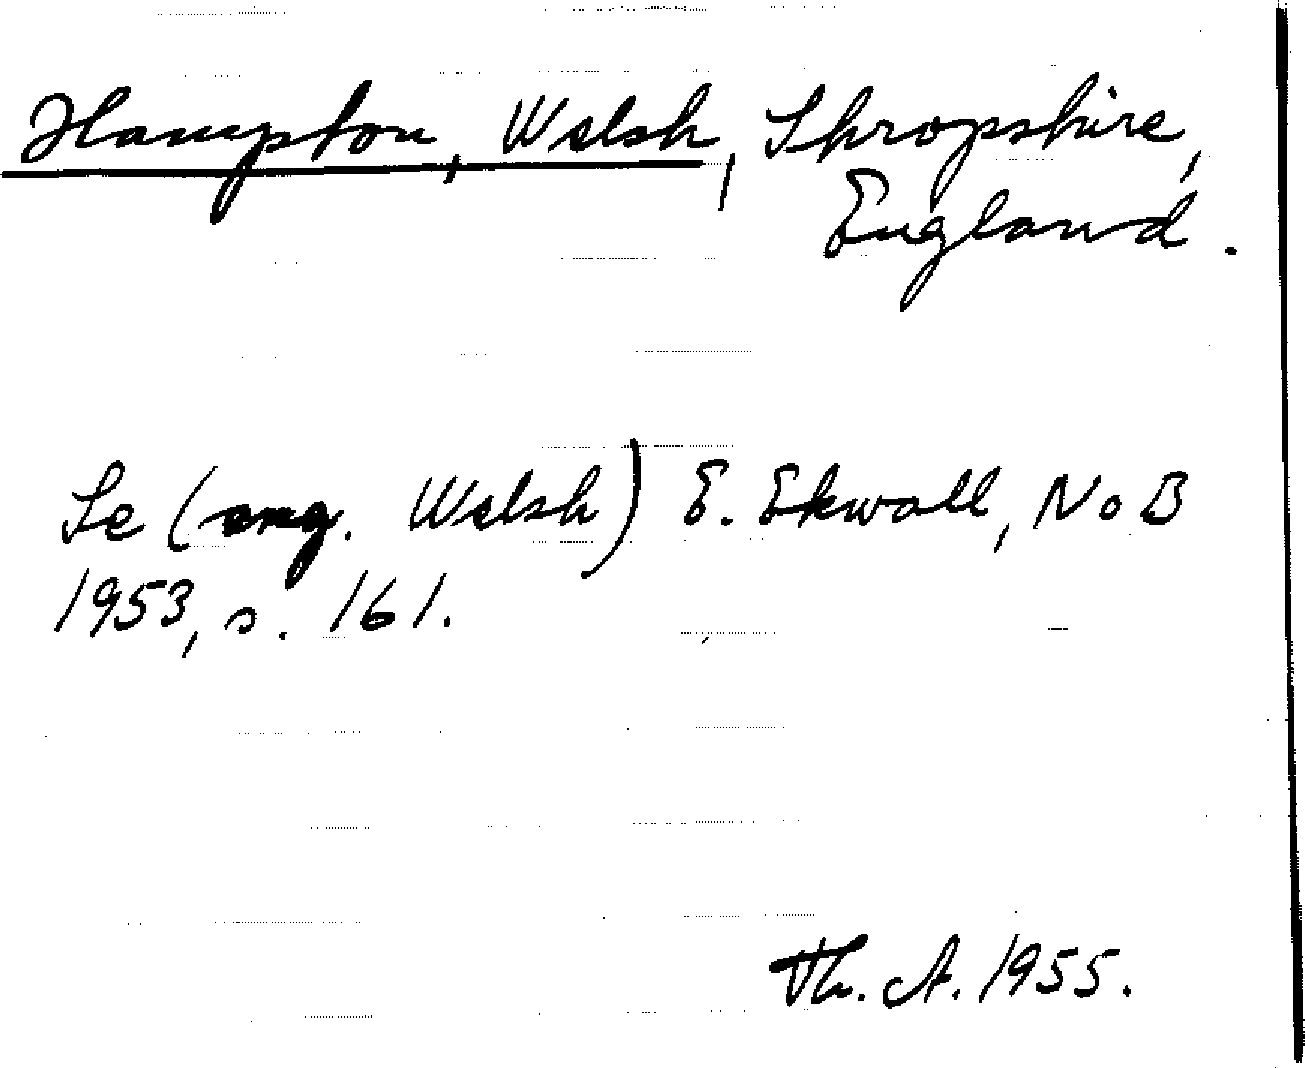 Hampton, Welsh, Shropshire,
England.
Se (ang. Welsh) E. Ekwall, NoB
1953, s. 161.
Th. A. 1955.